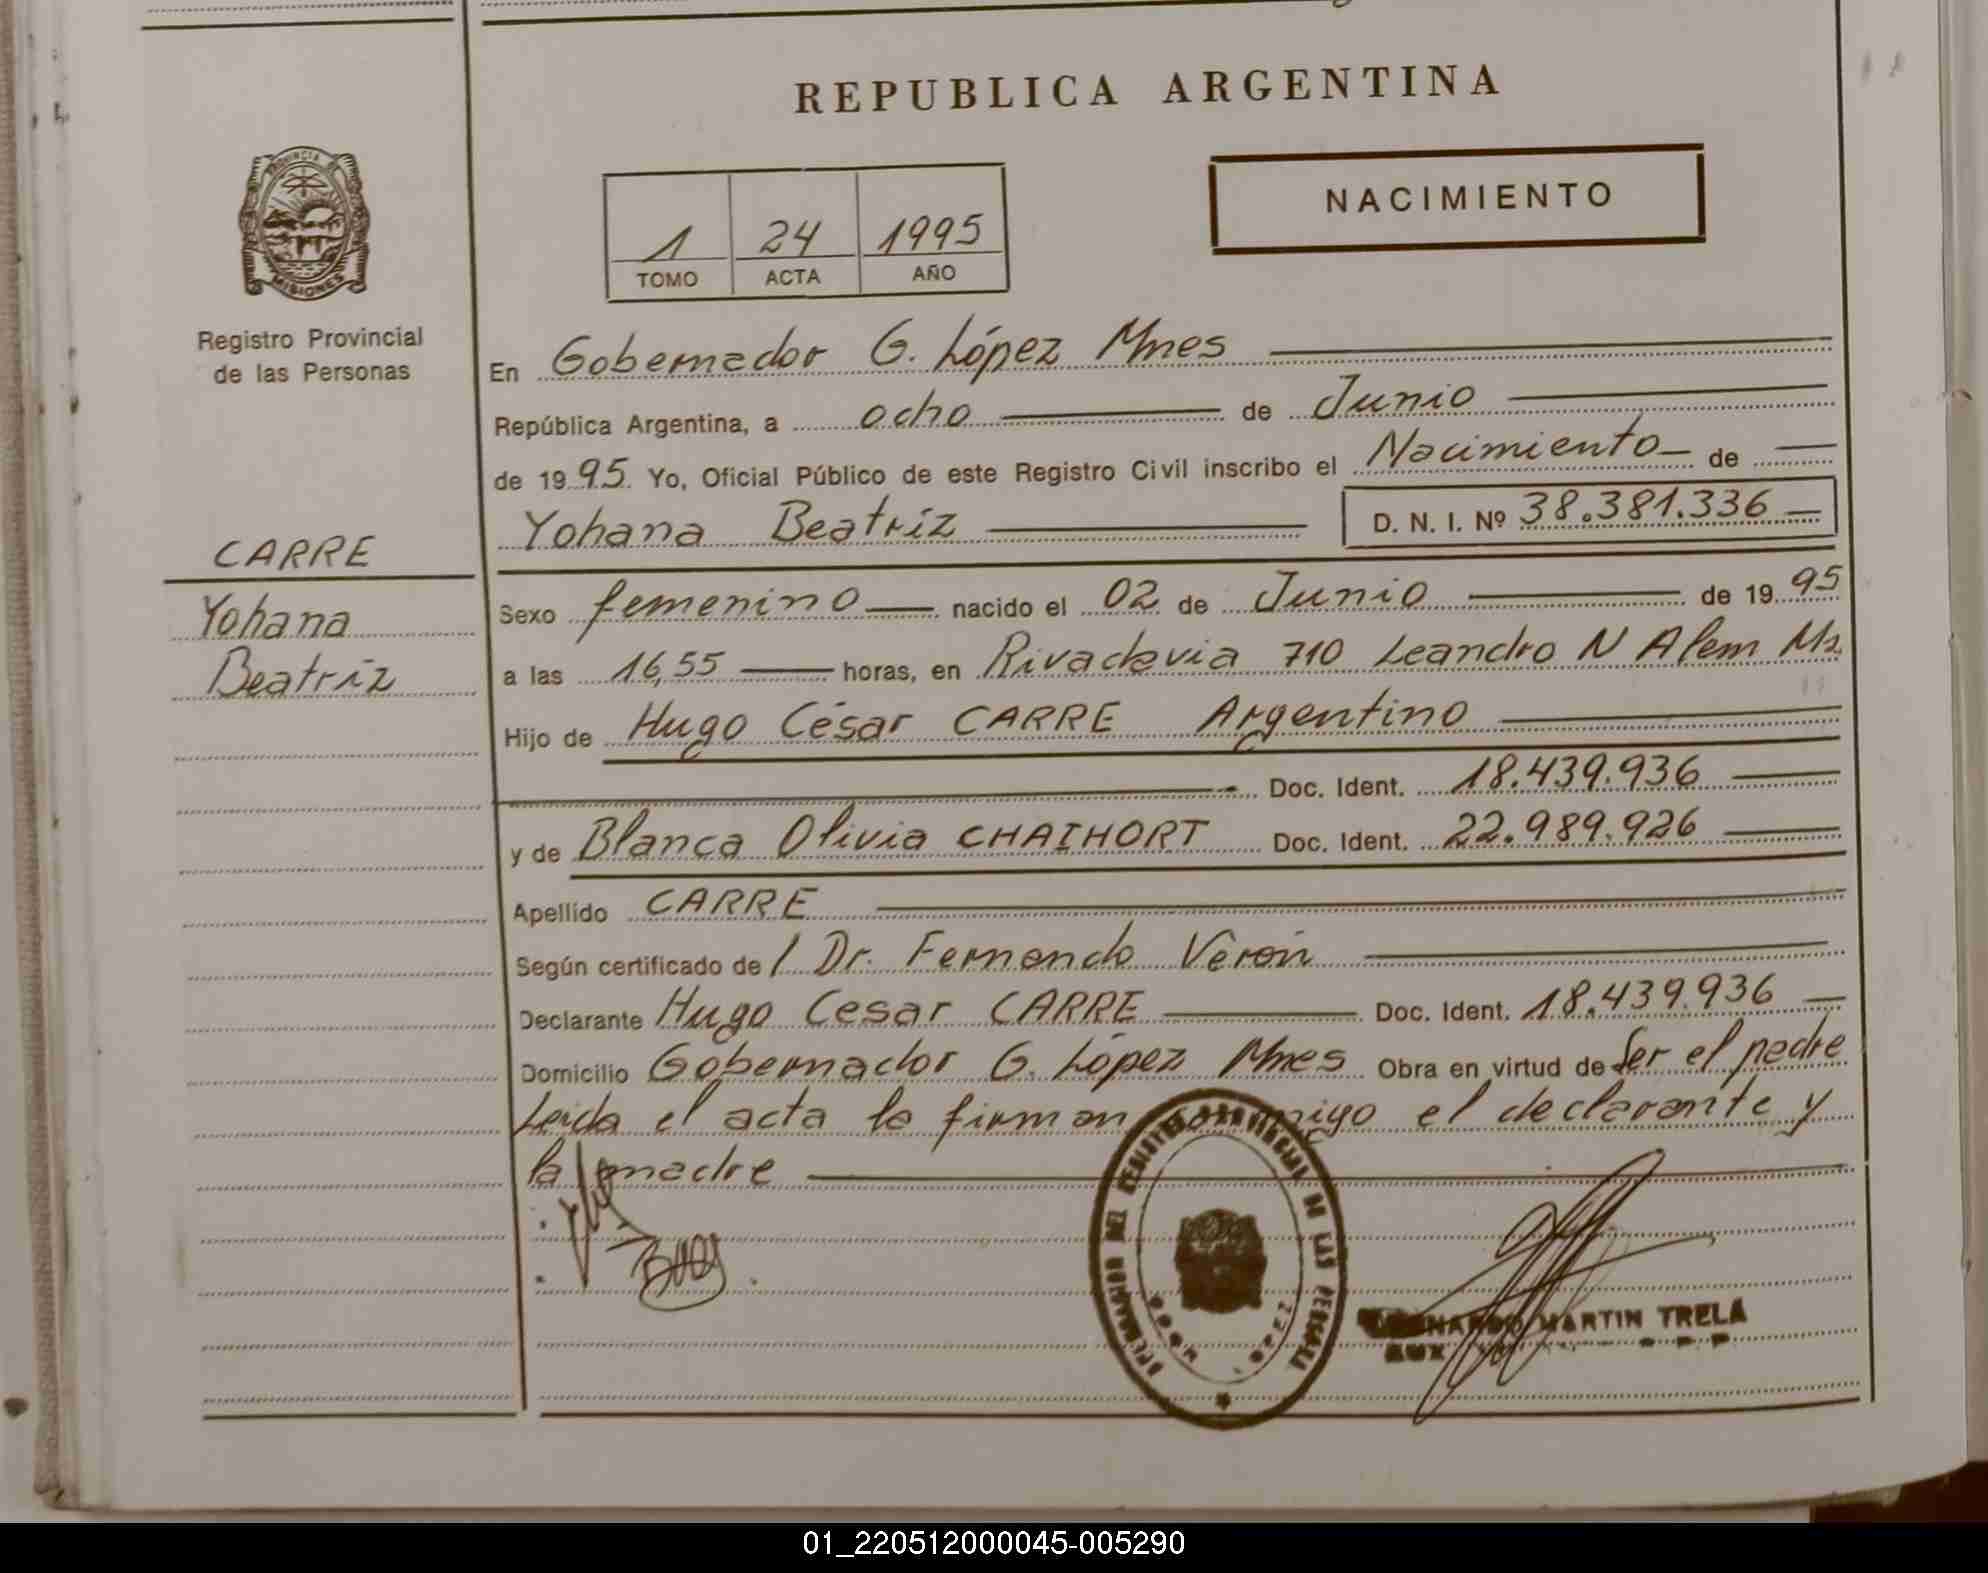 REPUBLICA ARGENTINA
NACIMIENTO
1 24 1995
TOMO ACTA AÑO
PROVINCIA DE
MISIONES
Registro Provincial
de las Personas
En Gobernador G. López Mnes
República Argentina, a ocho de Junio
de 1995. Yo, Oficial Público de este Registro Civil inscribo el Nacimiento de
Yohana Beatríz D. N. I. Nº 38.381.336
CARRE
Yohana
Beatríz
Sexo femenino nacido el 02 de Junio de 1995
a las 16,55 horas, en Rivadavia 710 Leandro N Alem Ms.
Hijo de Hugo César CARRE Argentino
Doc. Ident. 18.439.936
y de Blanca Olivia CHAIHORT Doc. Ident. 22.989.926
Apellido CARRE
Según certificado de l Dr. Fernando Verón
Declarante Hugo Cesar CARRE Doc. Ident. 18.439.936
Domicilio Gobernador G. López Mnes Obra en virtud de Ser el padre
Leída el acta la firman conmigo el declarante y
la madre
REGISTRO PROVINCIAL DE LAS PERSONAS
MARTIN TRELA
AUX
01_220512000045-005290